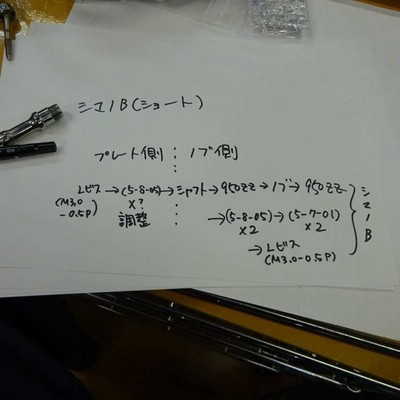 シマノB(ショート)
プレート側 : ノブ側
Lビス→(5-8-05)→シャフト→950ZZ→ノブ→950ZZ
(M3.0-0.5P) ×?
調整
→(5-8-05)→(5-7-01)
×2 ×2
→Lビス
(M3.0-0.5P)
シマノB